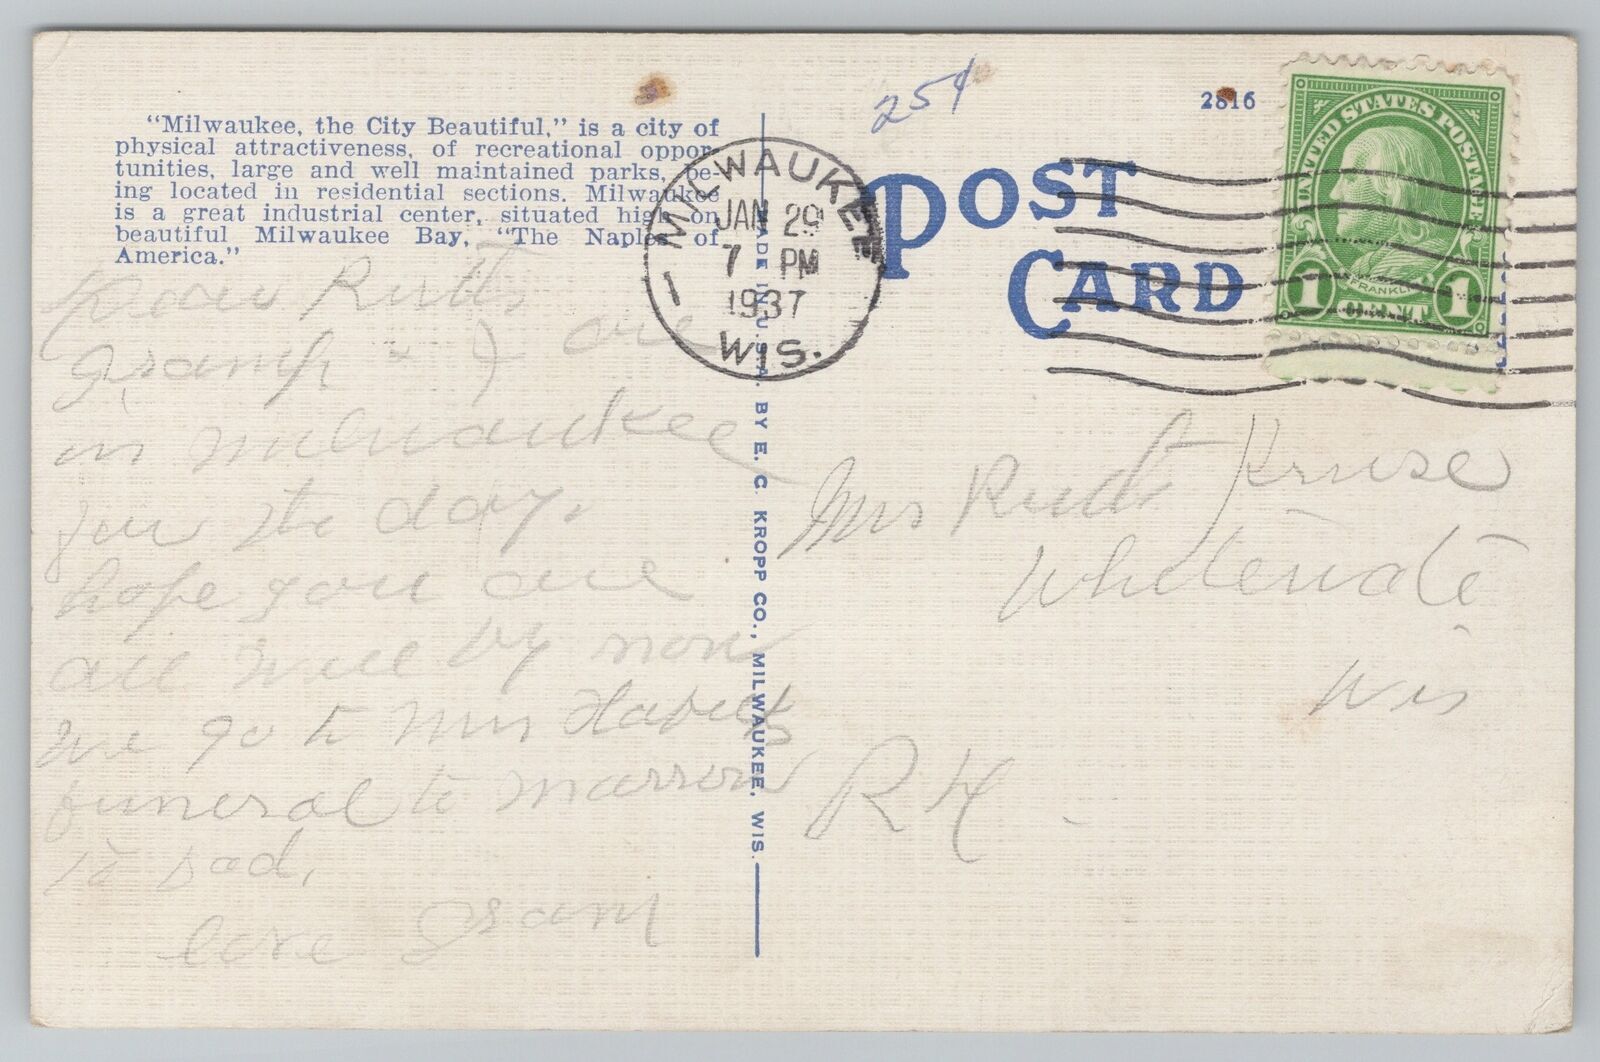 "Milwaukee, the City Beautiful," is a city of
physical attractiveness, of recreational oppor-
tunities, large and well maintained parks, be-
ing located in residential sections. Milwaukee
is a great industrial center, situated high on
beautiful Milwaukee Bay, "The Naples of
America."
Dear Ruth,
Gramp & I are
in Milwaukee
for the day.
hope you are
all well by now
we go to Mrs
funeral to morrow
is sad.
love Gram
MADE IN U.S.A. BY E. C. KROPP CO., MILWAUKEE, WIS.
MILWAUKEE
1
JAN 29
7 PM
1937
WIS.
25¢
2816
POST
CARD
UNITED STATES POSTAGE
FRANKLIN
1 CENT 1
Mrs Ruth Kruse
Whitewate
Wis